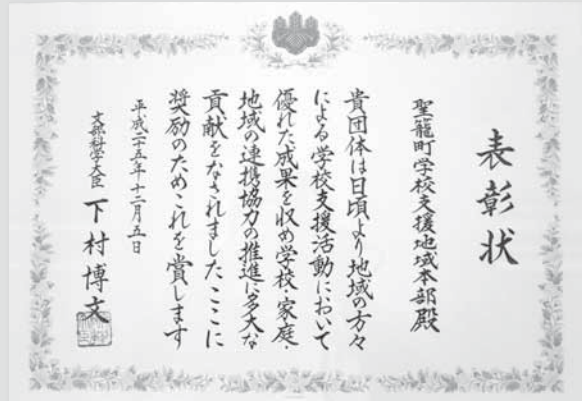 表彰状
聖籠町学校支援地域本部殿
貴団体は日頃より地域の方々
による学校支援活動において
優れた成果を収め学校・家庭・
地域の連携協力の推進に多大な
貢献をなされましたここに
奨励のためこれを賞します
平成二十五年十二月五日
文部科学大臣 下村博文